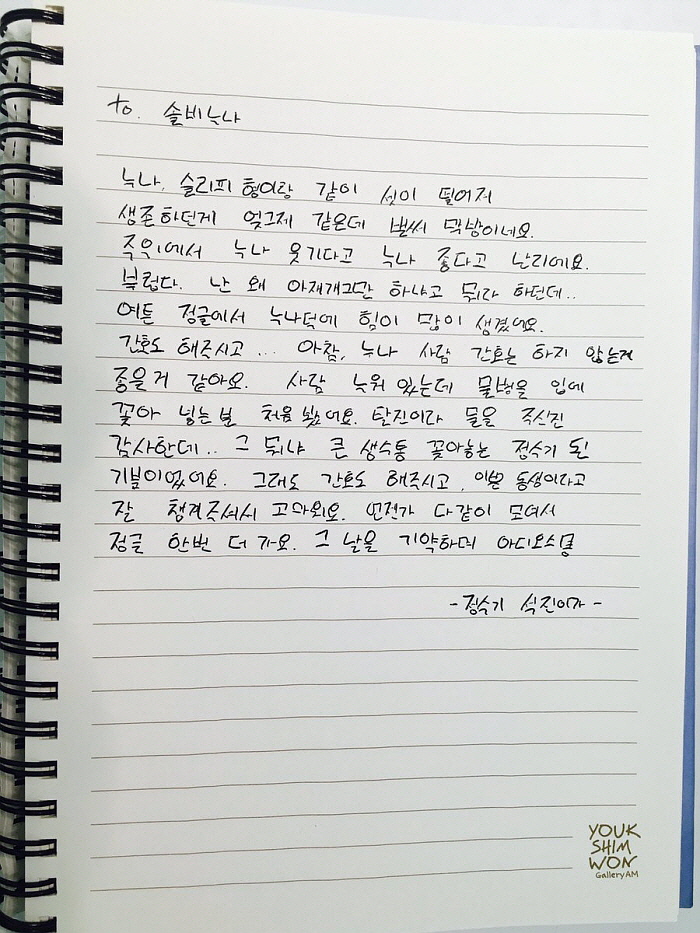 to. 솔비누나
누나, 슬리피 형이랑 같이 셋이 떨어져
생존하던게 엊그제 같은데 벌써 막방이네요.
주위에서 누나 웃기다고 누나 좋다고 난리에요.
부럽다. 난 왜 아재개그만 하냐고 뭐라 하던데..
여튼 정글에서 누나덕에 힘이 많이 생겼어요.
간호도 해주시고... 아참, 누나 사람 간호는 하지 않는게
좋을거 같아요. 사람 누워 있는데 물병을 입에
꽂아 넣는분 처음 봤어요. 탈진이라 물을 주신건
감사한데.. 그 뭐냐 큰 생수통 꽂아놓는 정수기 된
기분이었어요. 그래도 간호도 해주시고, 이쁜 동생이라고
잘 챙겨주셔서 고마워요. 언젠가 다같이 모여서
정글 한번 더 가요. 그 날을 기약하며 아디오스
- 정수기 석진이가 -
YOUK
SHIM
WON
GalleryAM